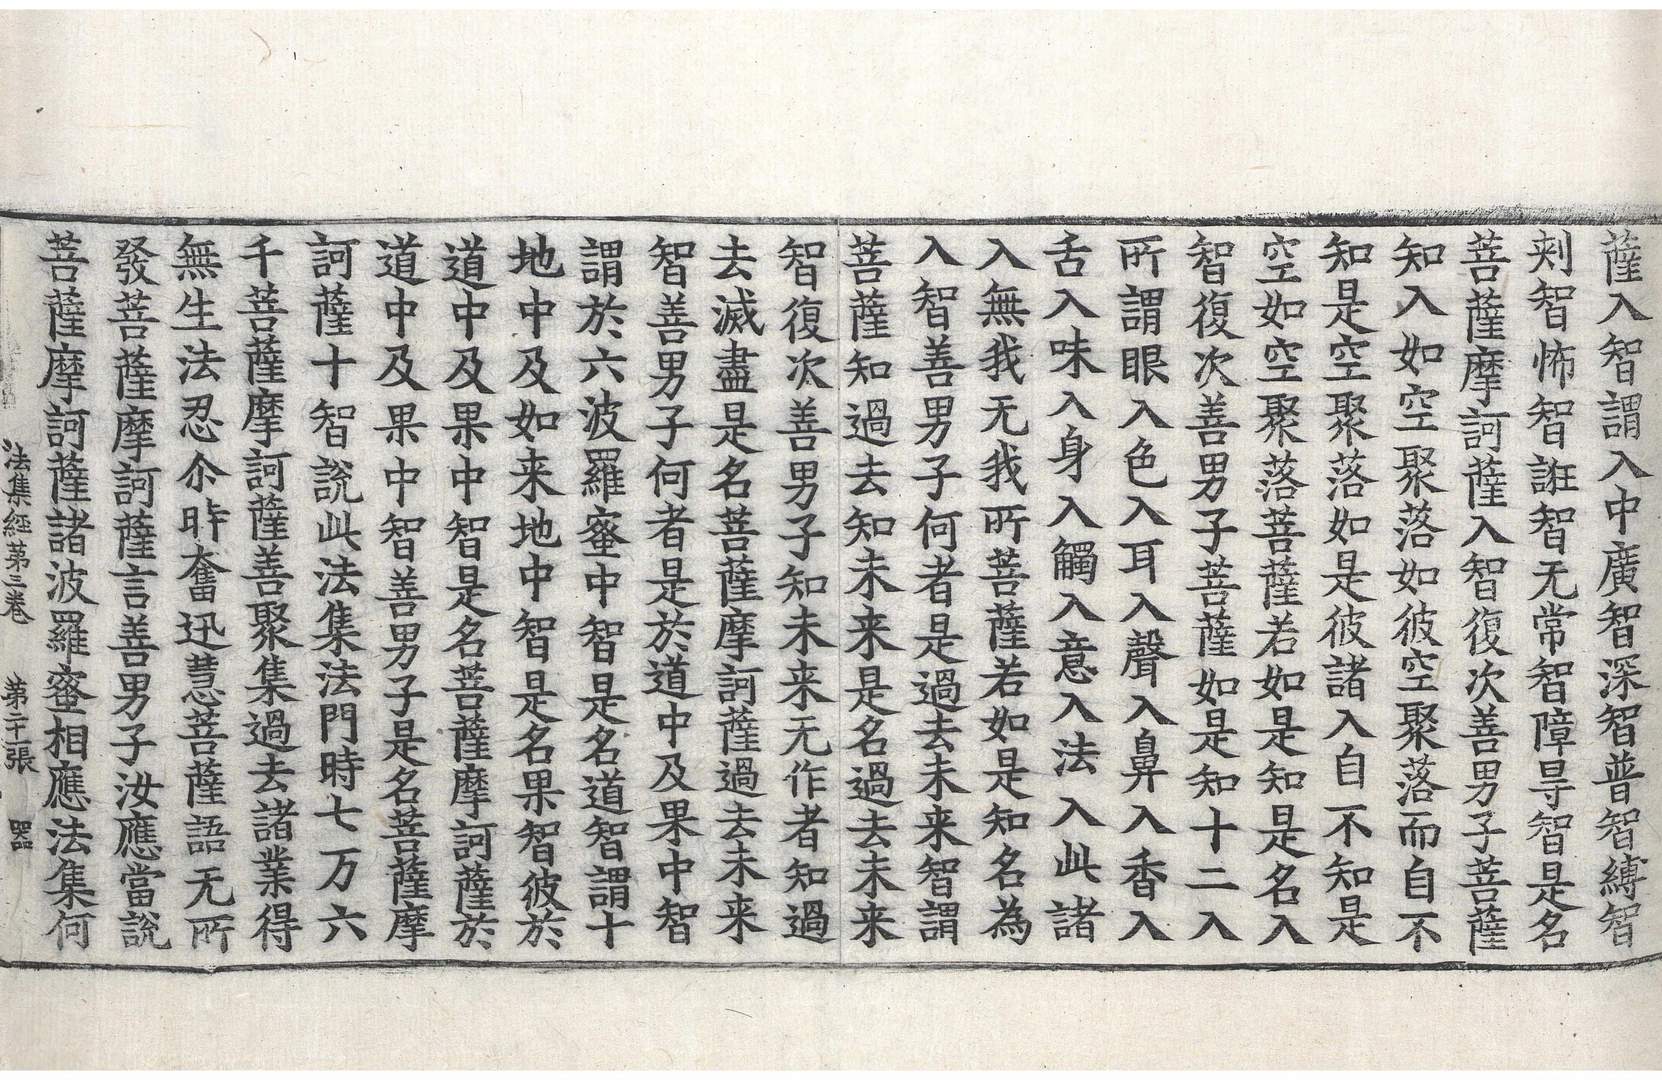 薩入智謂入中廣智深智普智縛智
刾智怖智誑智无常智障㝵智是名
菩薩摩訶薩入智復次善男子菩薩
知入如空聚落如彼空聚落而自不
知是空聚落如是彼諸入自不知是
空如空聚落菩薩若如是知是名入
智復次善男子菩薩如是知十二入
所謂眼入色入耳入聲入鼻入香入
舌入味入身入觸入意入法入此諸
入無我无我所菩薩若如是知名為
入智善男子何者是過去未来智謂
菩薩知過去知未来是名過去未来
智復次善男子知未来无作者知過
去滅盡是名菩薩摩訶薩過去未来
智善男子何者是於道中及果中智
謂於六波羅蜜中智是名道智謂十
地中及如来地中智是名果智彼於
道中及果中智是名菩薩摩訶薩於
道中及果中智善男子是名菩薩摩
訶薩十智說此法集法門時七万六
千菩薩摩訶薩善聚集過去諸業得
無生法忍尒時奮迅慧菩薩語无所
發菩薩摩訶薩言善男子汝應當說
菩薩摩訶薩諸波羅蜜相應法集何
法集經苐三卷 苐二十張 器